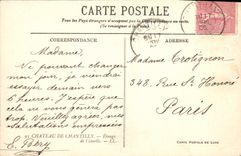 CARTE POSTALE
Tous les Pays étrangers n'acceptent pas la Correspondance au recto.
(Se renseigner à la Poste)
CORRESPONDANCE
ADRESSE
Madame,
Ne pouvant changer
mon jour, je viendrai
essayer demain vers
6 heures. J'espère que
cela ne vous gênera pas
trop. Veuillez agréer, mes
salutations empressées
E. Péry
Madame Crotignon
348 Rue St Honoré
Paris
CHATEAU DE CHANTILLY. - Étangs
LL.